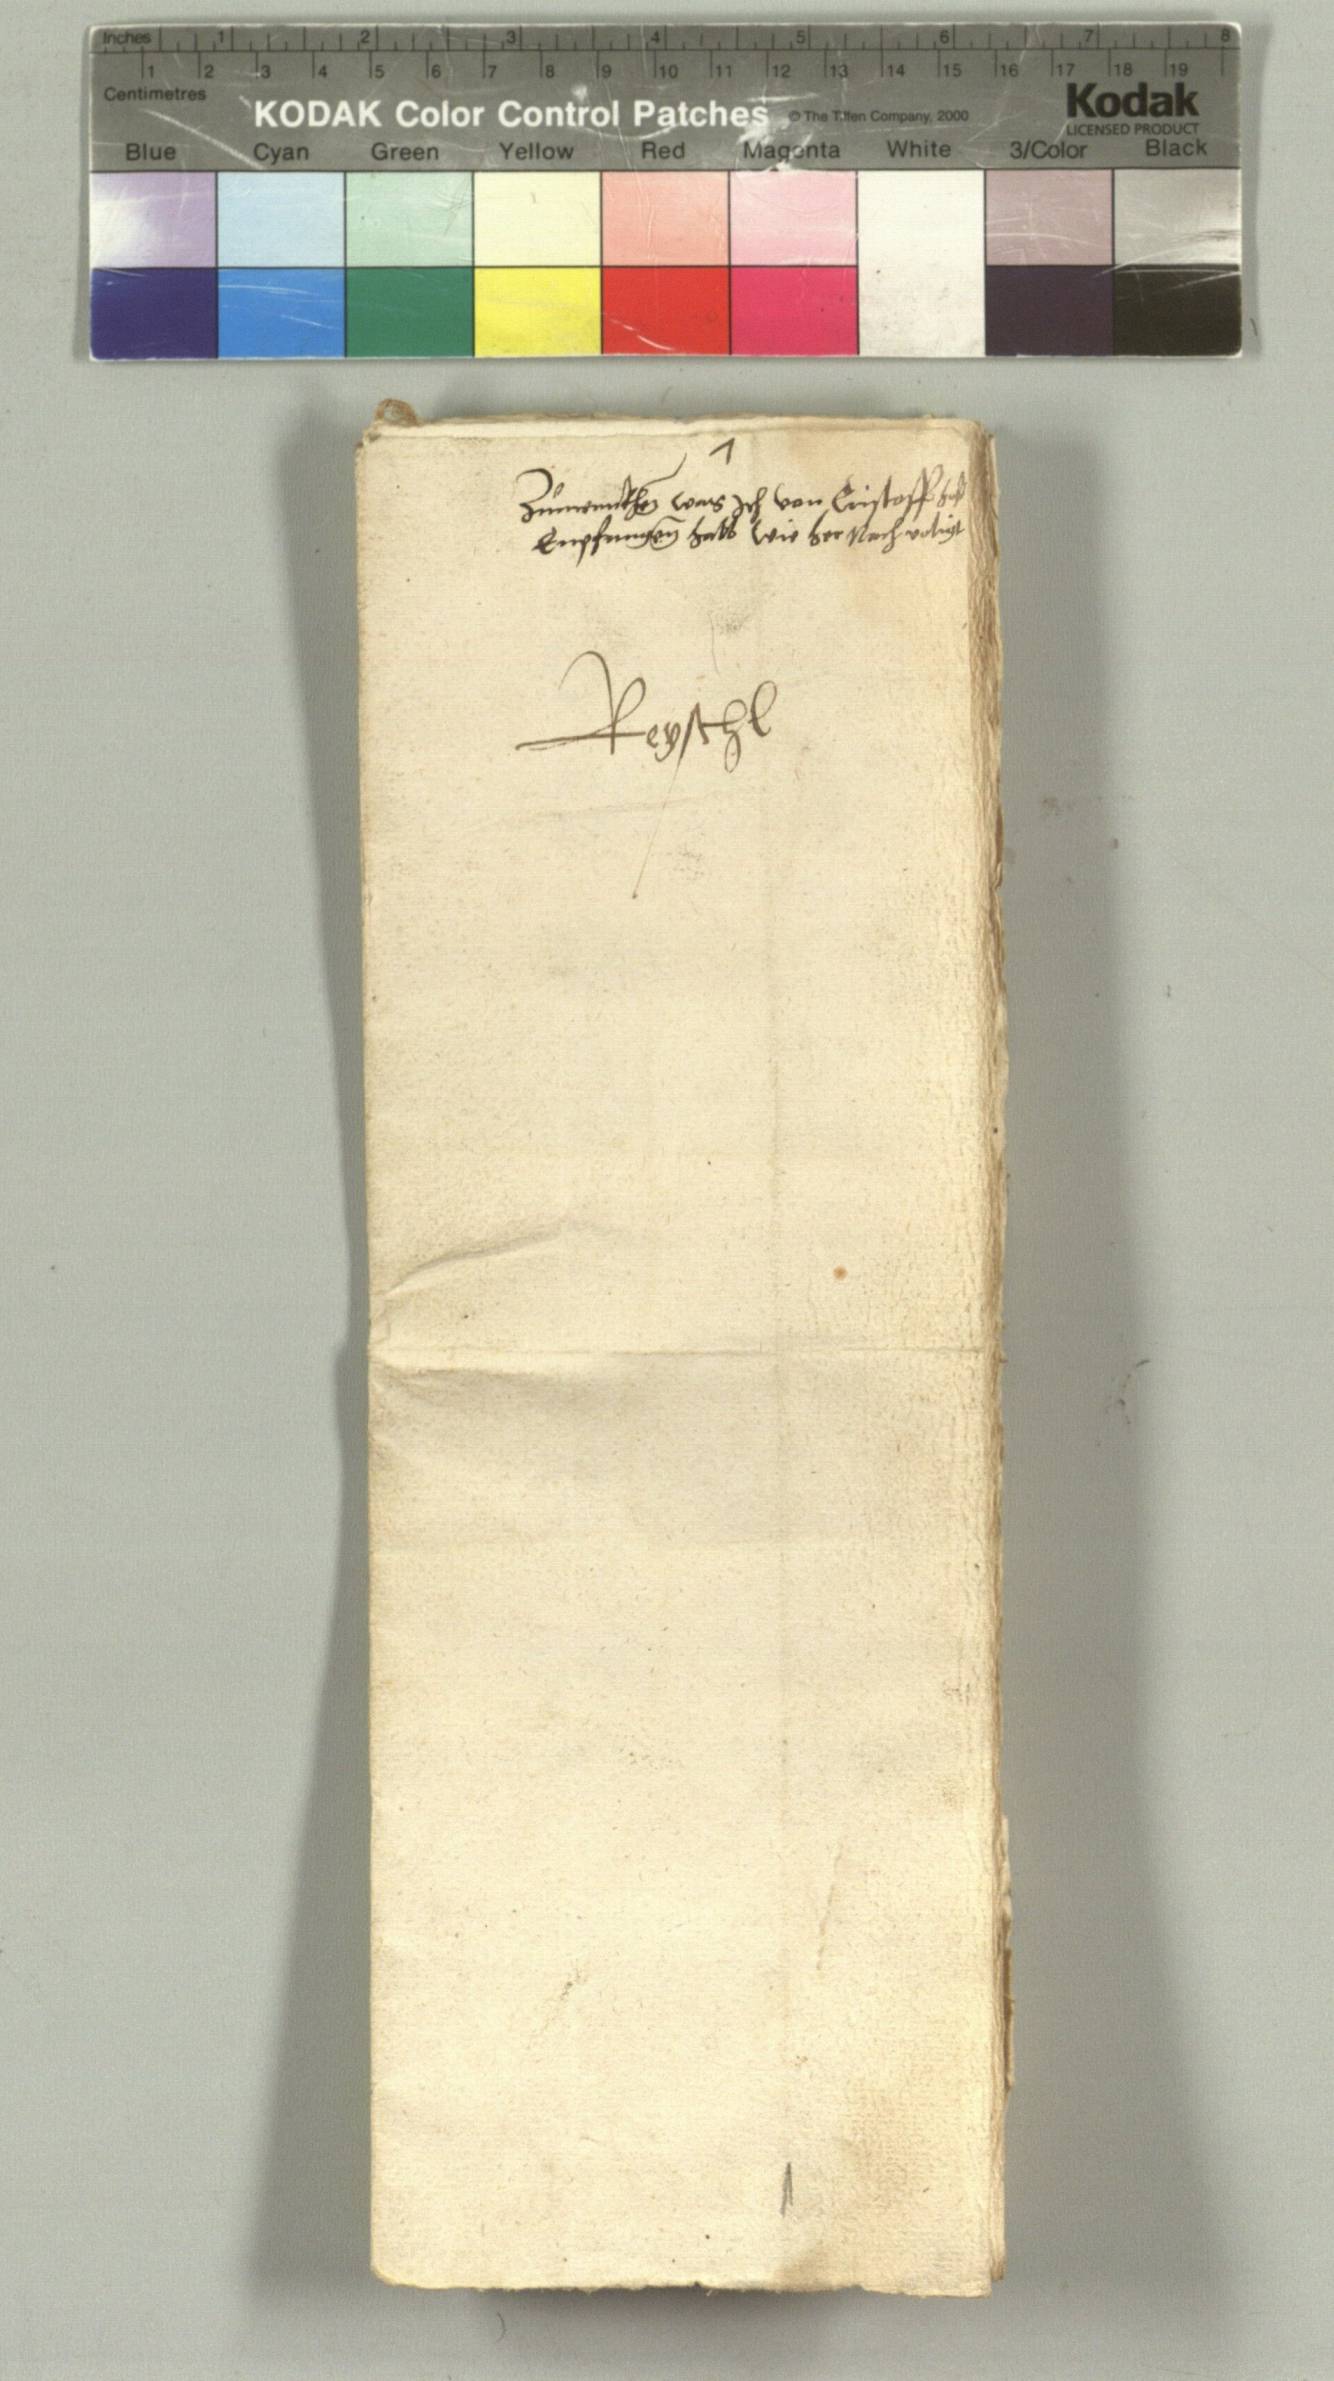 Inches 1 2 3 4 5 6 7 8
1 2 3 4 5 6 7 8 9 10 11 12 13 14 15 16 17 18 19
Centimetres
KODAK Color Control Patches © The Tiffen Company, 2000
Kodak
LICENSED PRODUCT
Blue Cyan Green Yellow Red Magenta White 3/Color Black
1
Zuuermerkhen was Ich von Cristoff
Empfanngen hab wie her Nach volgt
Reyschl
1